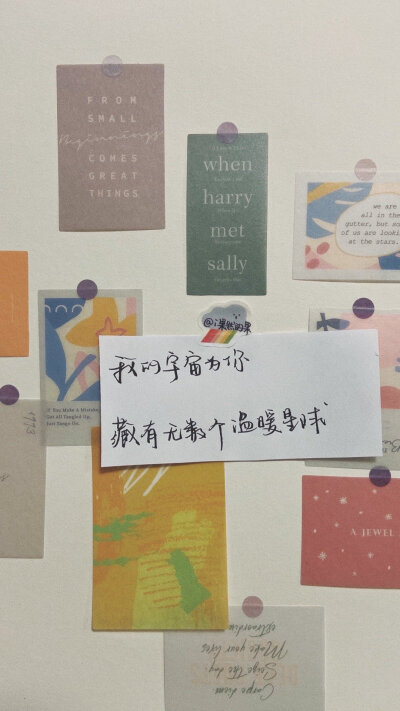 FROM
SMALL
Beginnings
COMES
GREAT
THINGS
when
harry
met
sally
we are
all in the
gutter, but so
of us are looki
at the stars.
@漠然的果
我的宇宙为你
藏有无数个温暖星球
If You Make A Mistake,
Get All Tangled Up,
Just Tango On.
1773
A JEWEL
Carpe diem.
Seize the day.
Make your lives
extraordin